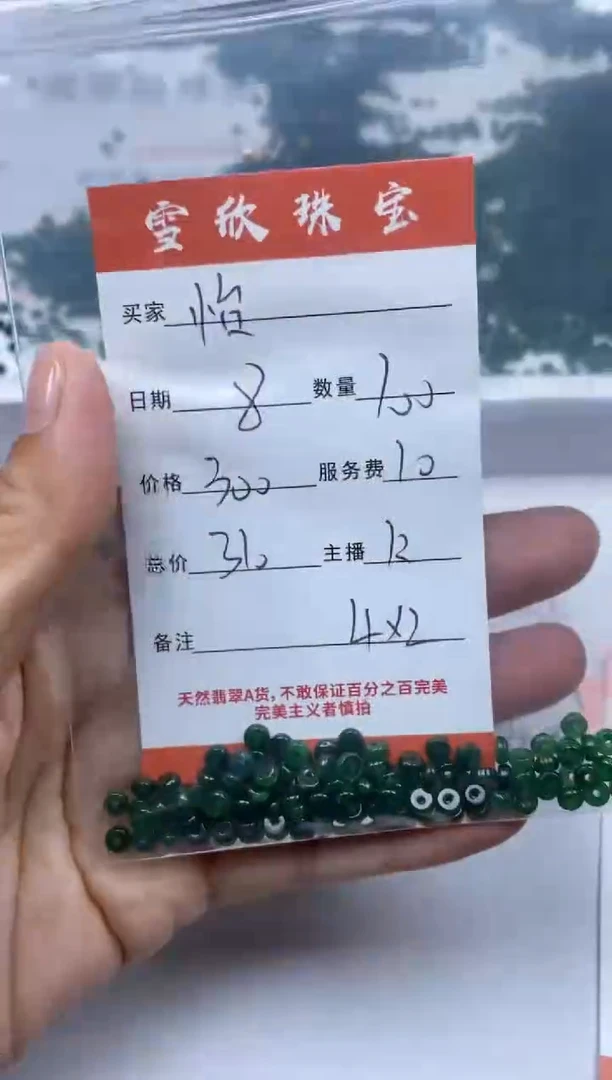 雪欣珠宝
买家 怡
日期 8 数量 100
价格 300 服务费 10
总价 310 主播 12
备注 4x2
天然翡翠A货，不敢保证百分之百完美
完美主义者慎拍